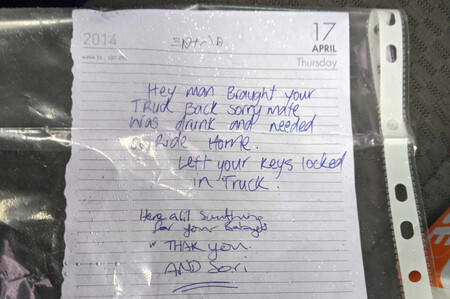 2014
17
APRIL
Thursday
Hey man Braught your
Truck Back sorry mate
Was drunk and needed
a Ride Home.
Left your keys locked
in Truck.
Here a lil Sumthing
for your
THAK you
AND Sori